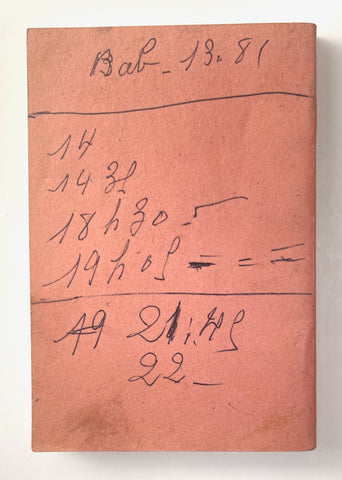 Bab - 13.81
14
14 35
18 h 30 -
19 h 05 = = =
19 21:45
22 -